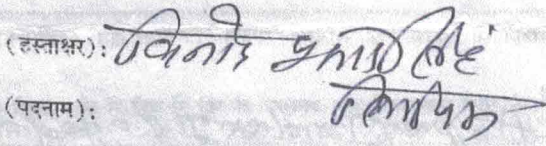 (हस्ताक्षर): विनोद प्रसाद सिंह
(पदनाम):